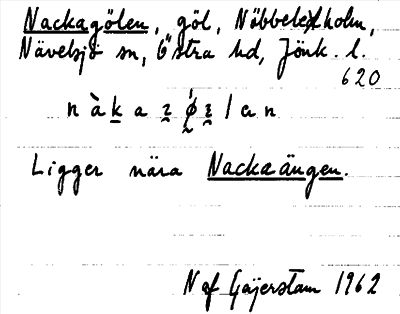 Nackagölen, göl, Nöbbeleholm,
Nävelsjö sn, Östra hd, Jönk. l.
620
Ligger nära Nackaängen.
N af Gäijerstam 1962